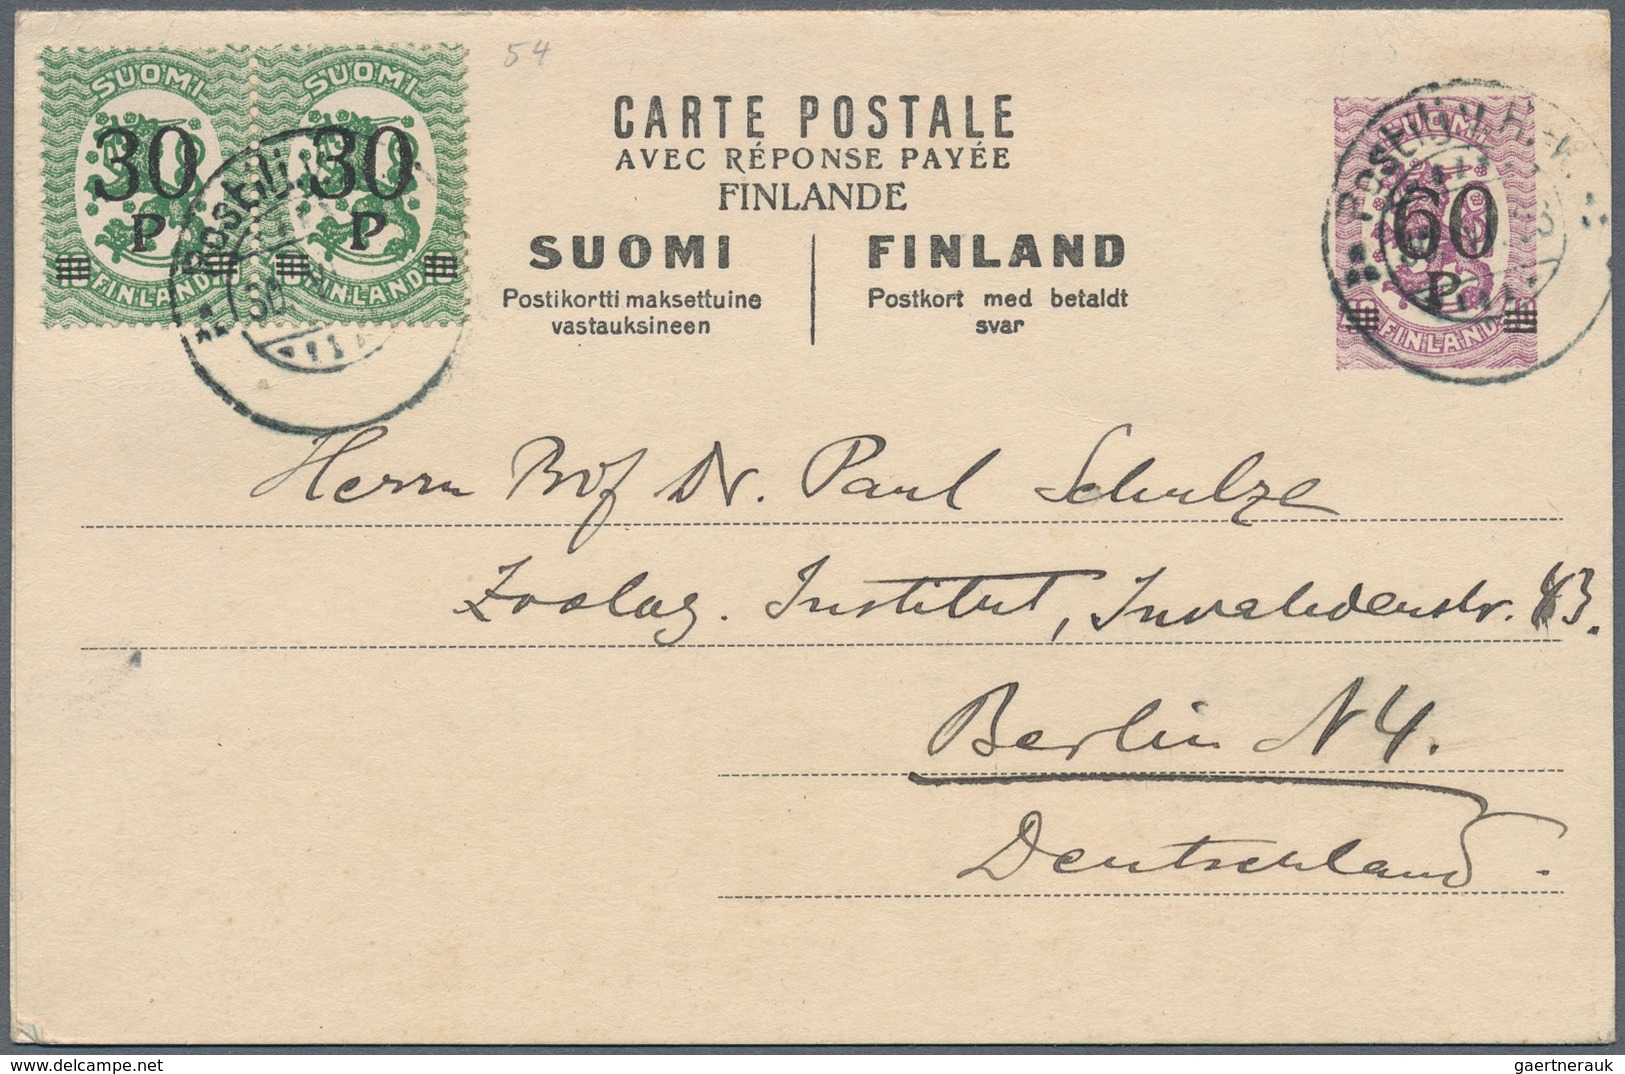 54
SUOMI SUOMI
30 30
P P
FINLAND FINLAND
CARTE POSTALE
AVEC RÉPONSE PAYÉE
FINLANDE
SUOMI
Postikortti maksettuine
vastauksineen
FINLAND
Postkort med betaldt
svar
SUOMI
60
P
FINLAND
Herrn Prof Dr. Paul Schulze
Zoolog. Institut, Invalidenstr. 43.
Berlin N 4.
Deutschland.
www.delcampe.net
gaertnerauk